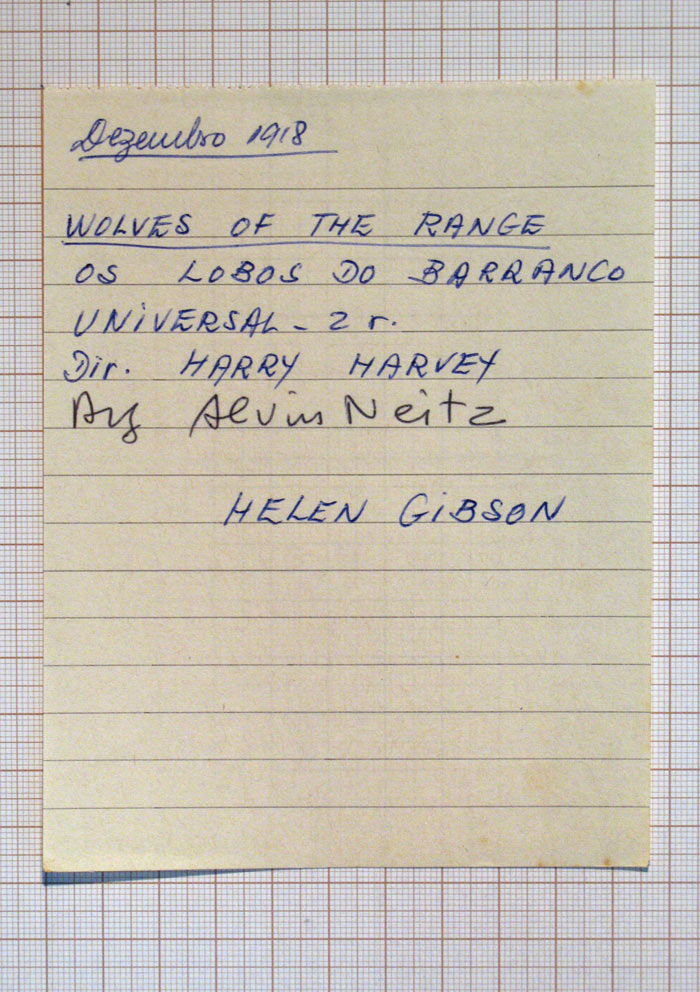 Dezembro 1918
WOLVES OF THE RANGE
OS LOBOS DO BARRANCO
UNIVERSAL - 2 r.
Dir. HARRY HARVEY
Arg Alvin Neitz
HELEN GIBSON